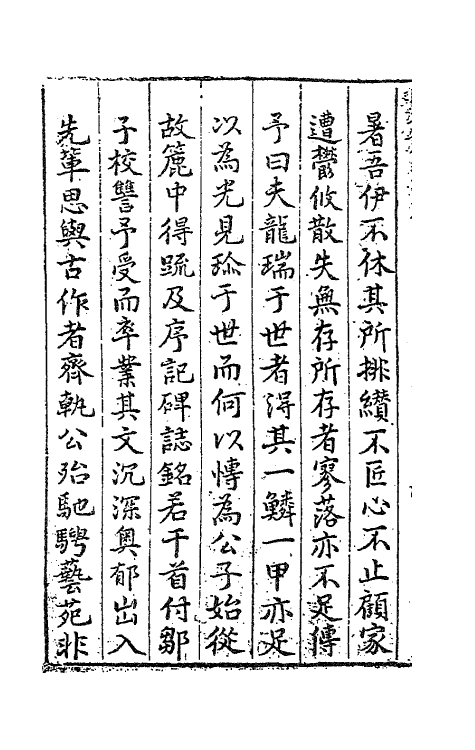 暑吾伊不休其所排纘不匠心不止顧家
遭鬱攸散失無存所存者寥落亦不足傳
予曰夫龍瑞于世者得其一鱗一甲亦足
以為光見珎于世而何以慱為公子始從
故簏中得䟽及序記碑誌銘若干首付鄒
子校讐予受而卒業其文沉深奥郁出入
先軰思與古作者齊軌公殆馳騁藝苑非